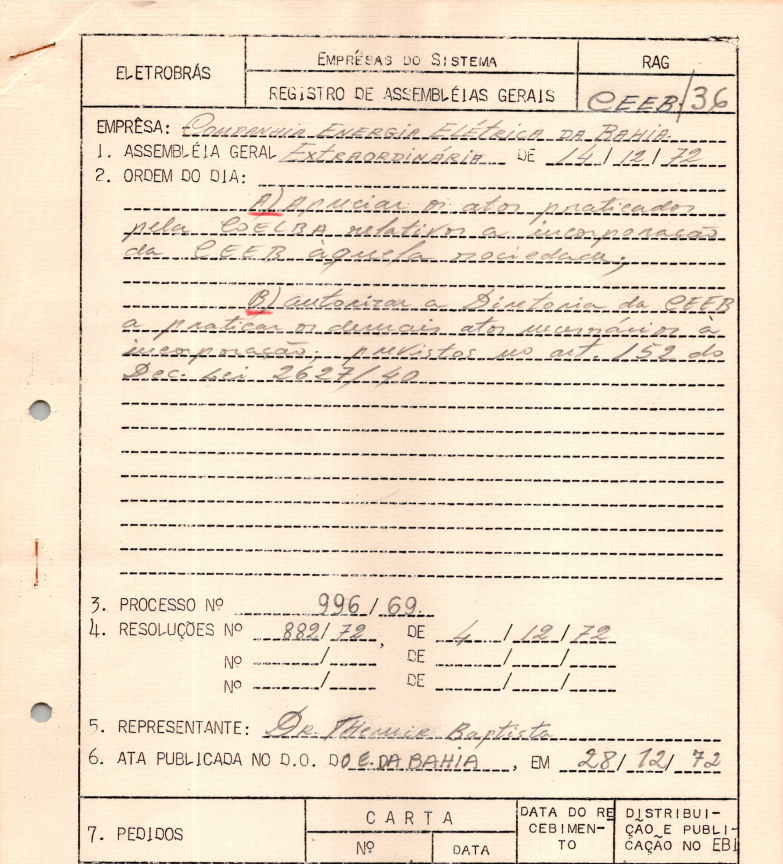 ELETROBRÁS
EMPRÊSAS DO SISTEMA
RAG
REGISTRO DE ASSEMBLÉIAS GERAIS
CEEB/36
EMPRÊSA: COMPANHIA ENERGIA ELÉTRICA DA BAHIA
1. ASSEMBLÉIA GERAL EXTRAORDINÁRIA DE 14/12/72
2. ORDEM DO DIA:
A) Apreciar os atos praticados
pela COELBA relativos a incorporação
da CEEB àquela sociedade;
B) autorizar a Diretoria da CEEB
a praticar os demais atos necessários à
incorporação, previstos no art. 152 do
Dec. Lei 2627/40
3. PROCESSO Nº 996/69.
4. RESOLUÇÕES Nº 882/72, DE 4/12/72
Nº / DE / /
Nº / DE / /
5. REPRESENTANTE: DR. Baptista
6. ATA PUBLICADA NO D.O. DO E. DA BAHIA, EM 28/12/72
7. PEDIDOS
CARTA
Nº
DATA
DATA DO RE
CEBIMEN-
TO
DISTRIBUI-
ÇÃO E PUBLI-
CAÇÃO NO EBI